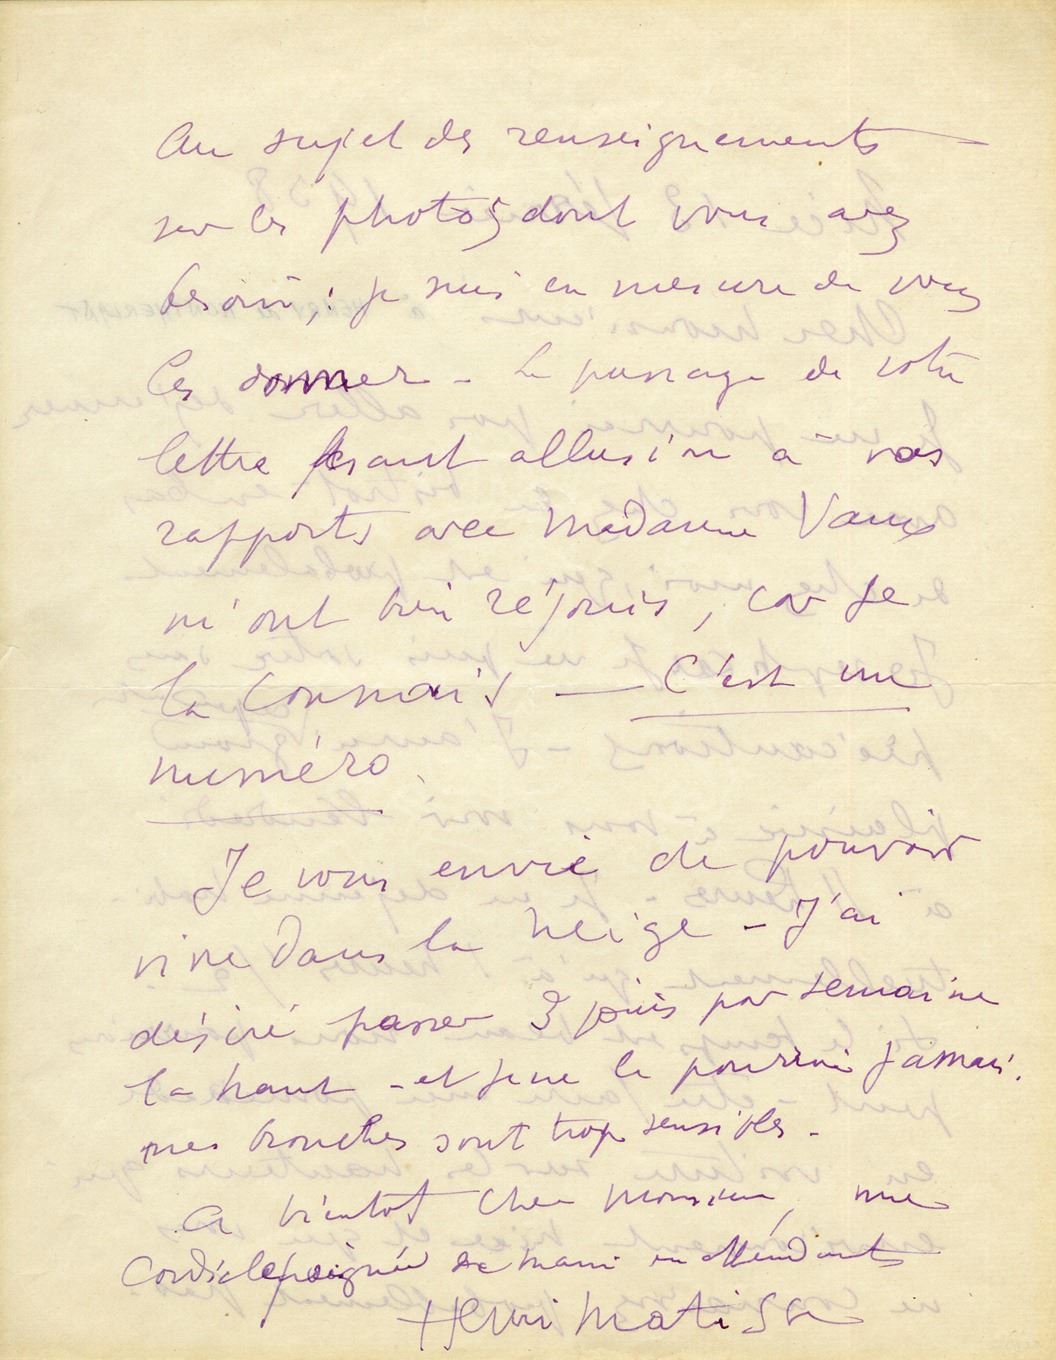 Au sujet des renseignements
sur les photos dont vous avez
besoin, : je suis en mesure de vous
les donner - Le passage de votre
lettre faisant allusion à vos
rapports avec Madame Vaux
m'ont bien réjouis, car je
la connais — C'est une
numéro.
Je vous envie de pouvoir
vivre dans la neige - J'ai
désiré passer 3 jours par semaine
la haut - et je ne le pourrai jamais.
mes bronches sont trop sensibles -
A bientot Cher Monsieur, une
Cordiale poignée de main en attendant
Henri Matisse